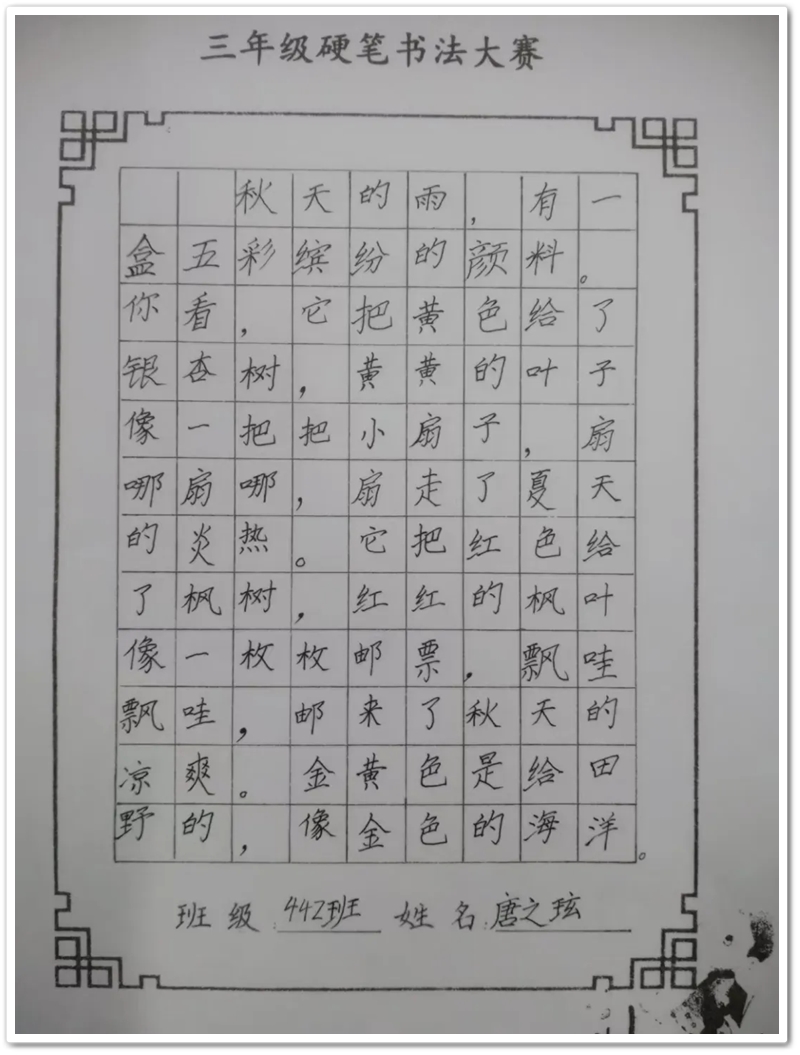 三年级硬笔书法大赛
秋天的雨，有一
盒五彩缤纷的颜料。
你看，它把黄色给了
银杏树，黄黄的叶子
像一把把小扇子，扇
哪扇哪，扇走了夏天
的炎热。它把红色给
了枫树，红红的枫叶
像一枚枚邮票，飘哇
飘哇，邮来了秋天的
凉爽。金黄色是给田
野的，像金色的海洋。
班级 442班 姓名 唐之玹